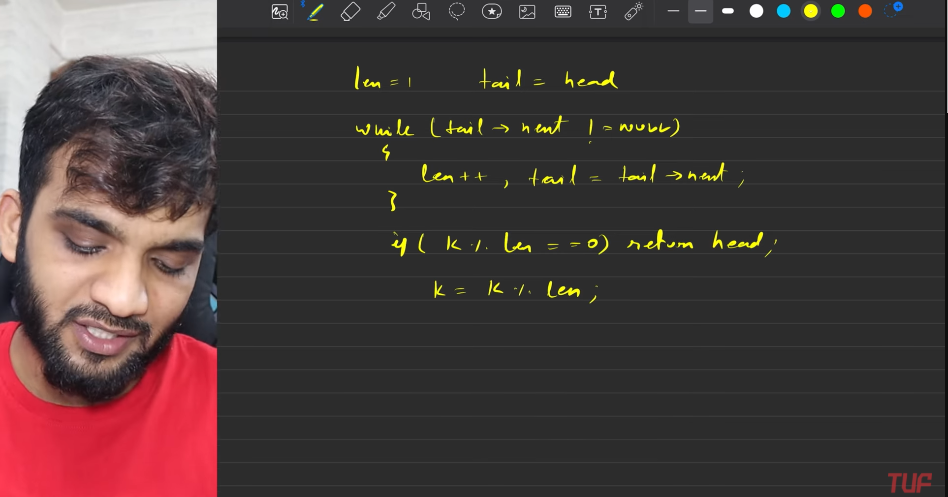 len = 1 tail = head
while (tail → next != NULL)
{
len++ , tail = tail → next ;
}
if ( K % len == 0) return head;
K = K % len ;
TUF